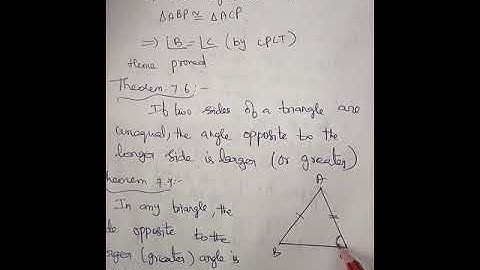 △ABP ≅ △ACP
⇒ ∠B = ∠C (by CPCT)
Hence proved
Theorem 7.6:-
If two sides of a triangle are
unequal, the angle opposite to the
longer side is larger (or greater)
theorem 7.7:-
A
In any triangle, the
de opposite to the
B
rger (greater) angle is